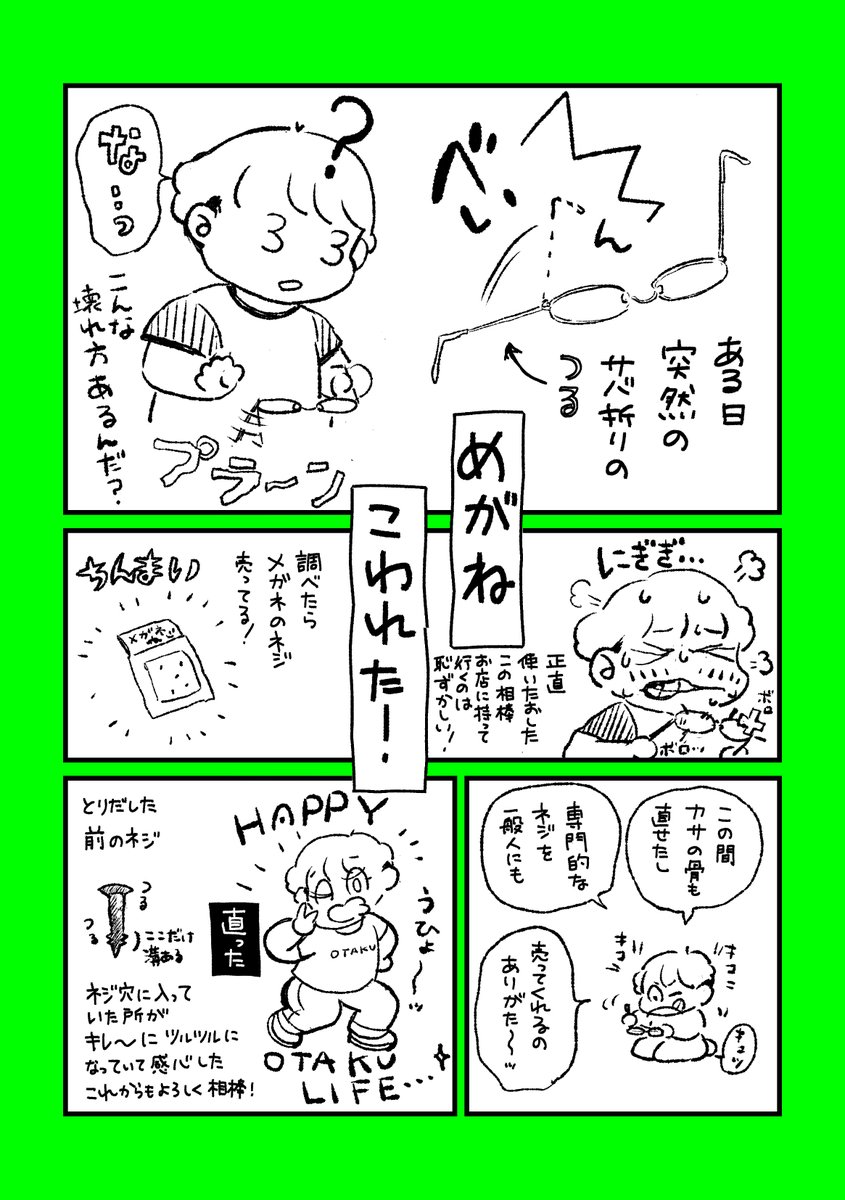 めがね
こわれたー!
べ
し
ん
ある日
突然の
サバ折りの
つる
?
な…っ
こんな
壊れ方あるんだ?
プラーン
にぎぎ…
ボロ
ボロッ
正直
使いたおした
この相棒
お店に持って
行くのは
恥ずかしい!
調べたら
メガネのネジ
売ってる!
ちんまい
メガネ
ねじ
この間
カサの骨も
直せたし
専門的な
ネジを
一般人にも
売ってくれるの
ありがた〜〜ッ
キコキコ
キコキコ
キュッ
HAPPY
うひょ〜〜ッ
直った
OTAKU
OTAKU
LIFE…
とりだした
前のネジ
つる
つる
ここだけ
溝ある
ネジ穴に入って
いた所が
キレ〜にツルツルに
なっていて感心した
これからもよろしく相棒!